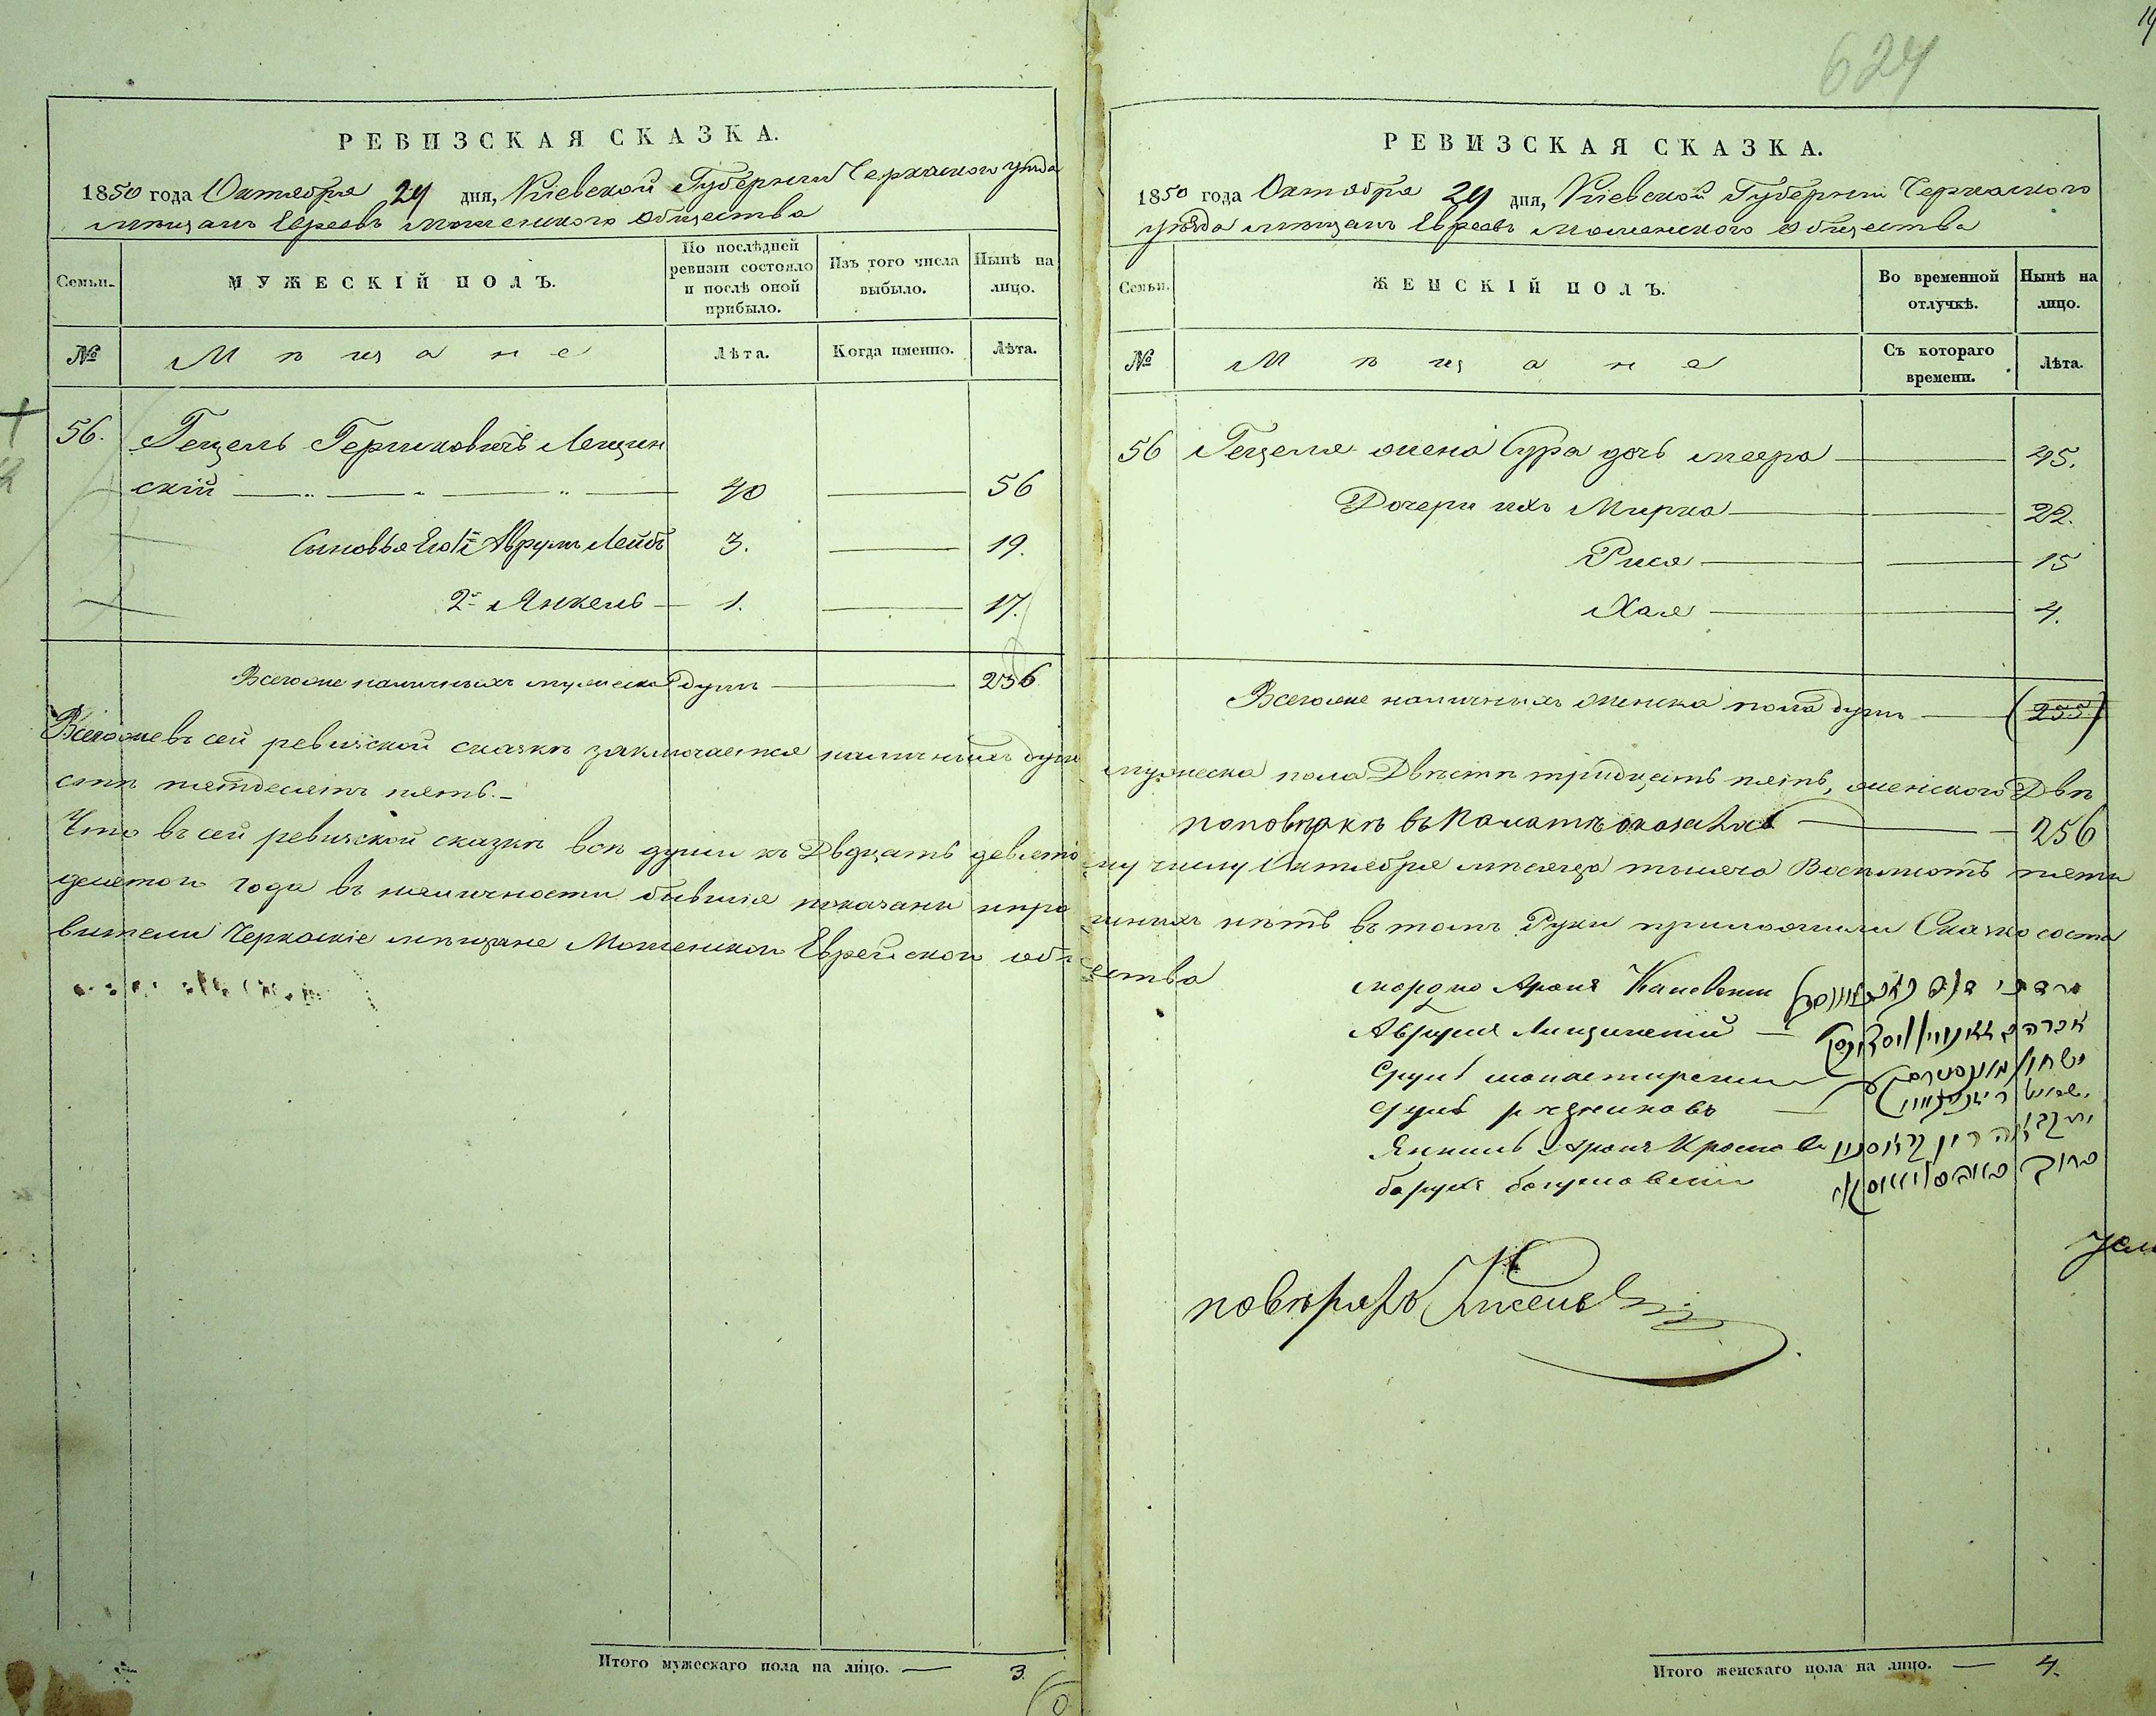 624
РЕВИЗСКАЯ СКАЗКА.
1850 года Октября 29 дня, Киевской Губернии Черкаского уѣзда
мѣщанъ Евреевъ мошенского общества
Семьи.
МУЖЕСКІЙ ПОЛЪ.
По послѣдней ревизіи состояло и послѣ оной прибыло.
Изъ того числа выбыло.
Нынѣ на лицо.
№
Мѣщане
Лѣта.
Когда именно.
Лѣта.
56. Гецель Гершковичъ Лещин
скій 40 56
Сыновья Его 1й Аврумъ Лейбъ 3. 19.
2й Янкель 1. 17.
Всего же наличныхъ мужеска душъ 236
РЕВИЗСКАЯ СКАЗКА.
1850 года Октября 29 дня, Киевской Губерніи Черкаского
уѣзда мѣщанъ Евреевъ мошенского общества
Семьи.
ЖЕНСКІЙ ПОЛЪ.
Во временной отлучкѣ.
Нынѣ на лицо.
№
Мѣщане
Съ котораго времени.
Лѣта.
56 Гецеля жена Сура дочь меера 45.
Дочери ихъ Мирка 22.
Рися 15
Хая 4.
Всего же наличныхъ женска пола душъ (255)
Всего же въ сей ревизской сказкѣ заключается наличныхъ душъ мужеска пола Двѣсти тридцать пять, женского Двѣ
сти пятдесятъ пять.
по повѣркѣ въ Палатѣ оказалось 256
Что въ сей ревизской сказкѣ всѣ души къ Двдцать девято му числу Октября мѣсяца тысяча Восемьсотъ пяти
десятого года въ наличности бывшія показаны и про шихъ нѣтъ въ томъ Руки приложили Сказко соста
вители Черкаскіе мѣщане Мошенского Еврейского общества
мордко Арона Каневскій
Аврумъ Лищинскій
Сруль монастирскій
Сруль резниковъ
Янкель Аронъ Красно
барухъ богуславскій
повѣрялъ
Итого мужескаго пола на лицо. — 3.
Итого женскаго пола на лицо. — 4.